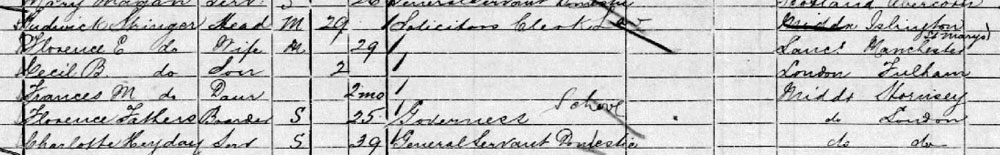 Mary Servt S 26 General Servant Domestic Scotland
Frederick Springer Head M 29 Solicitors Clerk Middx Islington (St Marys)
Florence E do Wife M 29 Lancs Manchester
Cecil B do Son 2 London Fulham
Frances M do Daur 2mo Middx Hornsey
Florence Fathers Boarder S 25 Governess School do London
Charlotte Heyday Serv S 29 General Servant Domestic do do